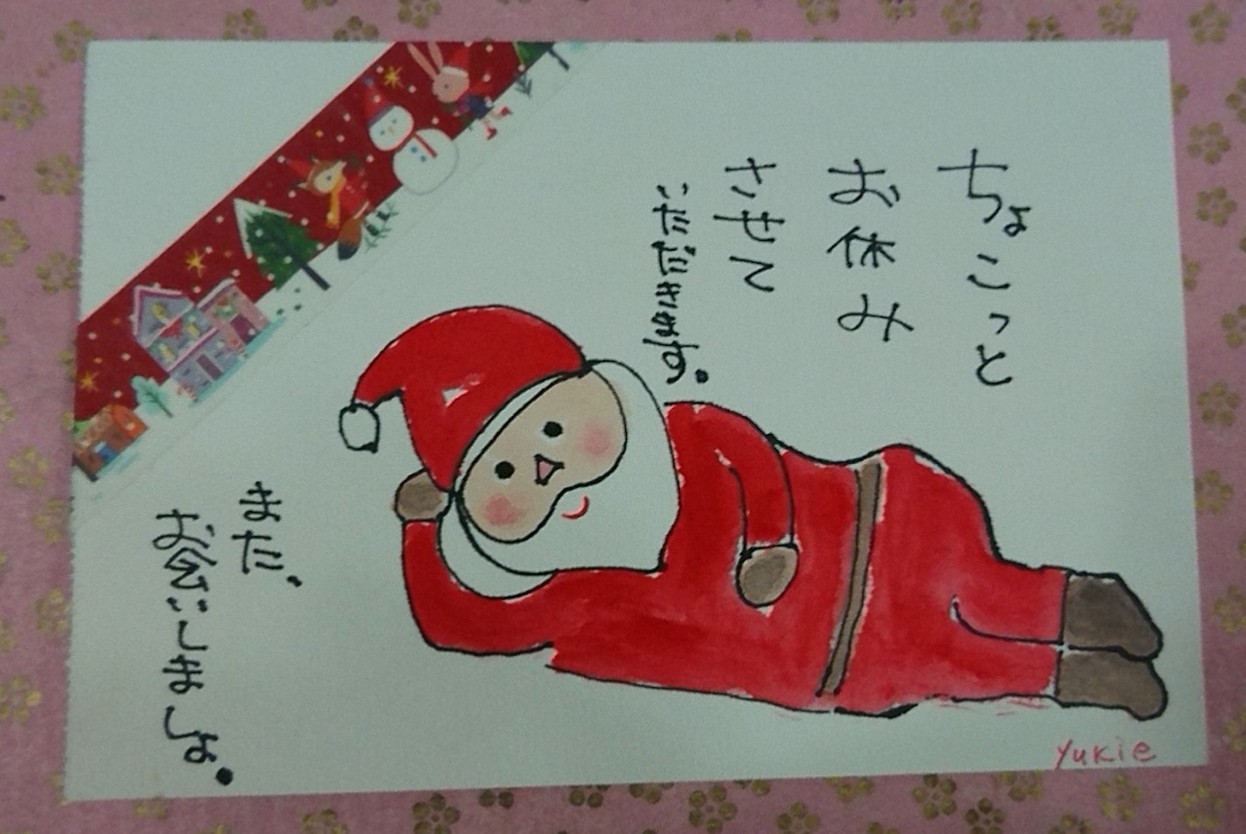 ちょこっと
お休み
させて
いただきます。
また、
お会いしましょ。
Yukie